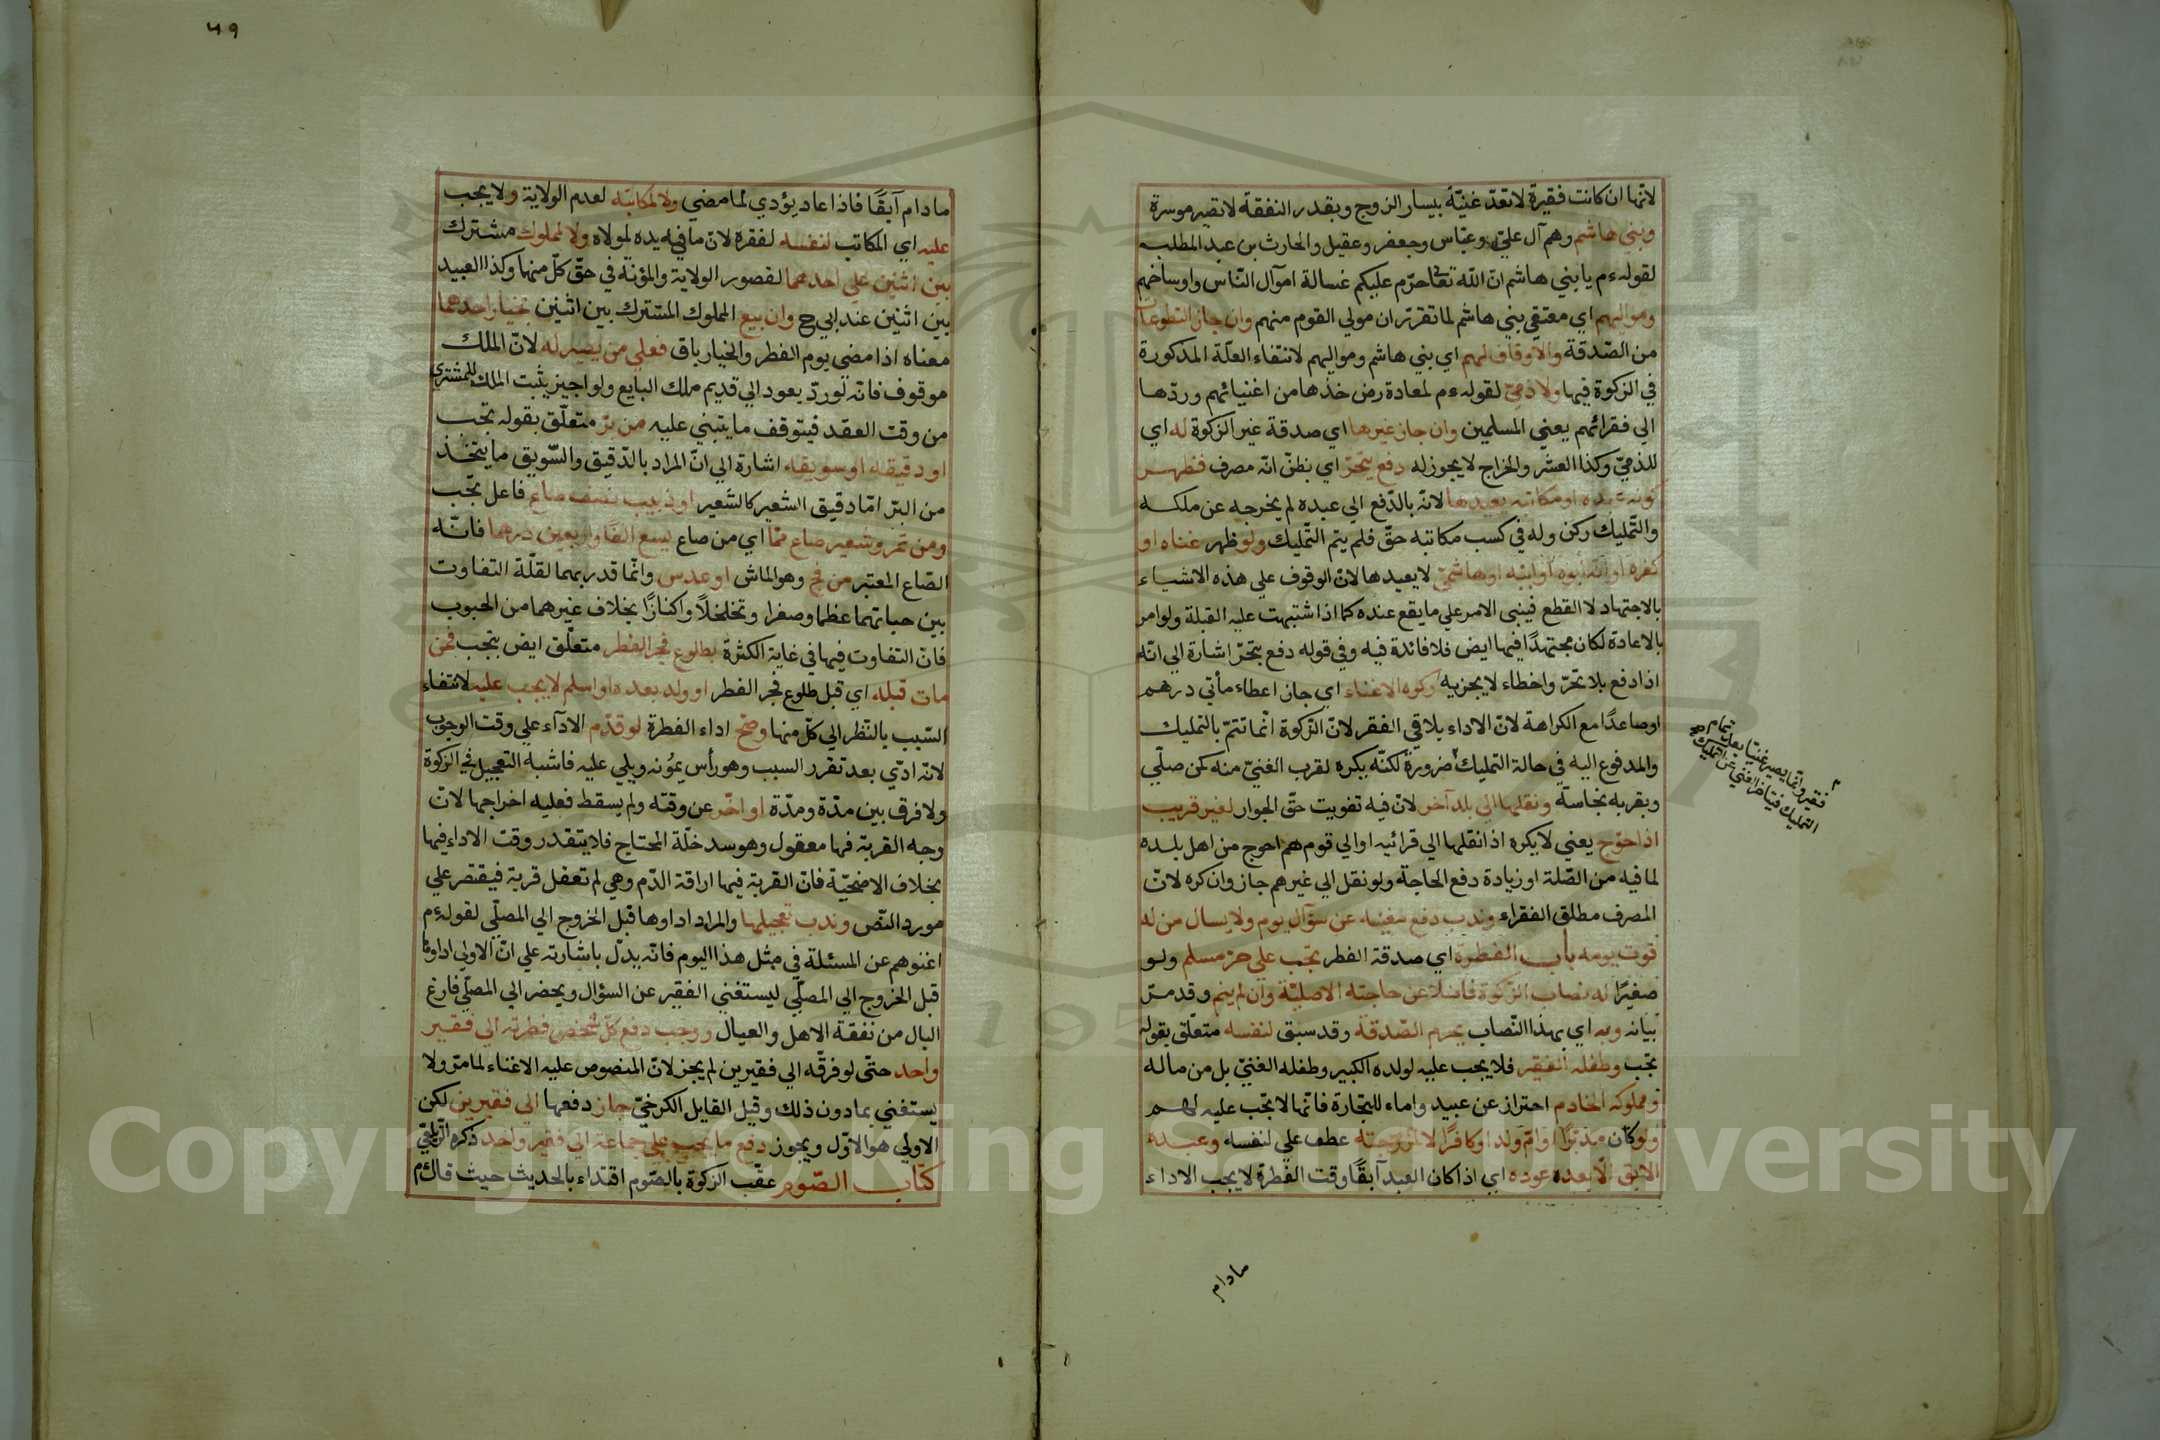 لانها ان كانت فقيرة لا تعد غنية بيسار الزوج وبقدر النفقة لا تصير موسرة
وبني هاشم وهم آل علي وعباس وجعفر وعقيل والحارث بن عبد المطلب
لقوله ءم يا بني هاشم ان الله تعا حرم عليكم غسالة اموال الناس واوساخهم
ومواليهم اي معتقي بني هاشم لما تقرر ان مولي القوم منهم وان جاز التطوعات
من الصدقة والاوقاف لهم اي بني هاشم ومواليهم لانتفاء العلة المذكورة
في الزكوة فيها ولا ذمي لقوله ءم لمعاذ رض خذها من اغنيائهم وردها
الي فقرائهم يعني المسلمين وان جاز غيرها اي صدقة غير الزكوة له اي
للذمي وكذا العشر والخراج لا يجوز له دفع بتحر اي بظن انه مصرف فظهر
كونه عبده او مكاتبه يعيدها لانه بالدفع الي عبده لم يخرجه عن ملكه
والتمليك ركن وله في كسب مكاتبه حق فلم يتم التمليك ولو ظهر غناه او
كفره او انه ابوه او ابنه او هاشمي لا يعيدها لان الوقوف علي هذه الاشياء
بالاجتهاد لا القطع فيبني الامر علي ما يقع عنده كما اذا اشتبهت عليه القبلة ولو امر
بالاعادة لكان مجتهدا فيها ايض فلا فائدة فيه وفي قوله دفع بتحر اشارة الي انه
اذا دفع بلا تحر واخطاء لا يجزيه وكره الاغناء اي جاز اعطاء مأتي درهم
او صاعدا مع الكراهة لان الاداء يلاقي الفقر لان الزكوة انما تتم بالتمليك
والمدفوع اليه في حالة التمليك ضرورة لكنه يكره لقرب الغني منه كمن صلي
وبقربه نجاسة ونقلها الي بلد آخر لان فيه تفويت حق الجوار لغير قريب
او احوج يعني لا يكره اذا نقلها الي قرائبه او الي قوم هم احوج من اهل بلده
لما فيه من الصلة او زيادة دفع الحاجة ولو نقل الي غيرهم جاز وان كره لان
المصرف مطلق الفقراء وندب دفع مغنيه عن سؤال يوم ولا يسال من له
قوت يومه باب الفطرة اي صدقة الفطر تجب علي حر مسلم ولو
صغيرا له نصاب الزكوة فاضلا عن حاجته الاصلية وان لم ينم وقد مر
بيانه وبه اي بهذا النصاب يحرم الصدقة وقد سبق لنفسه متعلق بقوله
تجب وطفله الفقير فلا يجب عليه لولده الكبير وطفله الغني بل من ماله
ومملوكه الخادم احتراز عن عبيد واماء للتجارة فانها لا تجب عليه لهم
ولو كان مدبرا او ام ولد او كافرا لا لزوجته عطف علي لنفسه وعبده
الابق الا بعد عوده اي اذا كان العبد آبقا وقت الفطرة لا يجب الاداء
فقير وانما يصير غنيا بعد تمام
التمليك فيتاخر الغني عن التمليك
مادام
٤٩
مادام آبقا فاذا عاد يؤدي لما مضي ولا لمكاتبه لعدم الولاية ولا يجب
عليه اي المكاتب لنفسه لفقره لان ما في يده لمولاه ولا لمملوك مشترك
بين اثنين علي احدهما لقصور الولاية والمؤنة في حق كل منها وكذا العبيد
بين اثنين عند ابي ح وان بيع المملوك المشترك بين اثنين بخيار احدهما
معناه اذا مضي يوم الفطر والخيار باق فعلي من يصير له لان الملك
موقوف فانه لو رد يعود الي قديم ملك البايع ولو اجيز يثبت الملك للمشتري
من وقت العقد فيتوقف ما يبتني عليه من بر متعلق بقوله تجب
او دقيقه او سويقه اشارة الي ان المراد بالدقيق والسويق ما يتخذ
من البر اما دقيق الشعير كالشعير او زبيب نصف صاع فاعل تجب
ومن تمر وشعير صاع مما اي من صاع يسع الفا واربعين درهما فانه
الصاع المعتبر من مج وهو الماش او عدس وانما قدر بهما لقلة التفاوت
بين حباتهما عظما وصغرا وتخلخلا واكتنازا بخلاف غيرهما من الحبوب
فان التفاوت فيها في غاية الكثرة بطلوع فجر الفطر متعلق ايض بتجب فمن
مات قبله اي قبل طلوع فجر الفطر او ولد بعده او اسلم لا يجب عليه لانتفاء
السبب بالنظر الي كل منها وصح اداء الفطرة لو قدم الادآء علي وقت الوجوب
لانه ادي بعد تقرر السبب وهو رأس يمونه ويلي عليه فاشبه التعجيل في الزكوة
ولا فرق بين مدة ومدة او اخر عن وقته ولم يسقط فعليه اخراجها لان
وجه القربة فيها معقول وهو سد خلة المحتاج فلا يتقدر وقت الاداء فيها
بخلاف الاضحية فان القربة فيها اراقة الدم وهي لم تعقل قربة فيقتصر علي
مورد النص وندب تعجيلها والمراد اداوها قبل الخروج الي المصلي لقوله ءم
اغنوهم عن المسئلة في مثل هذا اليوم فانه يدل باشارته علي ان الاولي اداوها
قبل الخروج الي المصلي ليستغني الفقير عن السؤال ويحضر الي المصلي فارغ
البال من نفقة الاهل والعيال ووجب دفع كل شخص فطرته الي فقير
واحد حتي لو فرقه الي فقيرين لم يجز لان المنصوص عليه الاغناء لما مر ولا
يستغني بما دون ذلك وقيل القايل الكرخي جاز دفعها الي فقيرين لكن
الاولي هو الاول ويجوز دفع ما يجب علي جماعة الي فقير واحد ذكره الزيلعي
كتاب الصوم عقب الزكوة بالصوم اقتداء بالحديث حيث قال ءم
Copyright © King Saud University